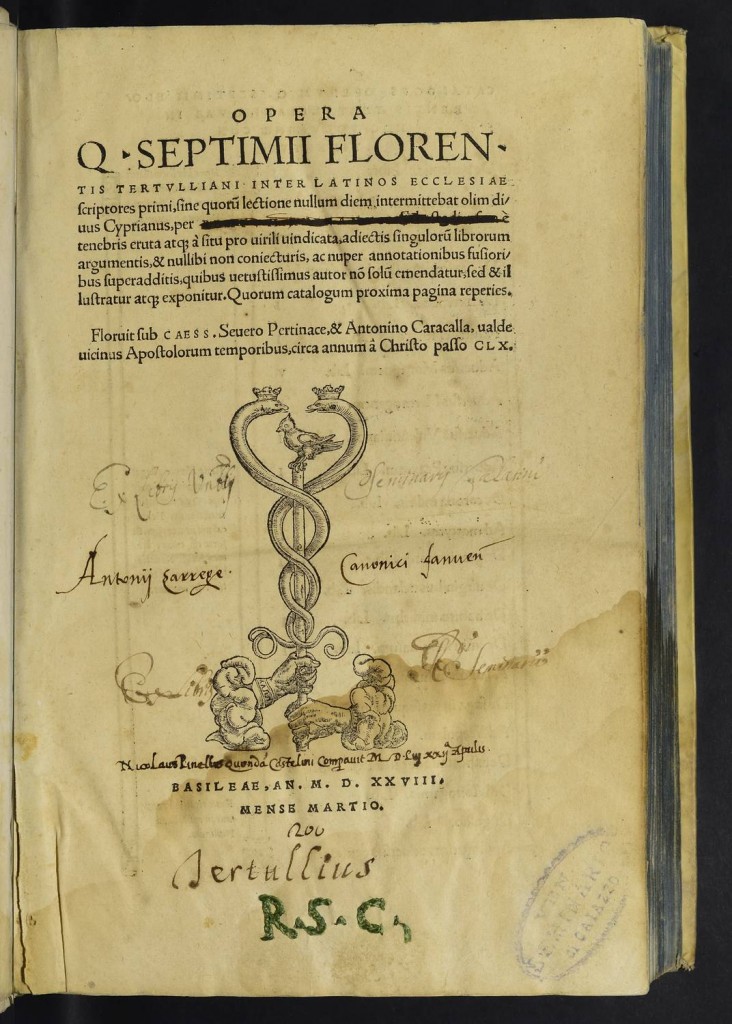 OPERA
Q. SEPTIMII FLOREN-
TIS TERTVLLIANI INTER LATINOS ECCLESIAE
scriptores primi, sine quorū lectione nullum diem intermittebat olim di/
uus Cyprianus, per è
tenebris eruta atq; à situ pro uirili uindicata, adiectis singulorū librorum
argumentis, & nullibi non coniecturis, ac nuper annotationibus fusiori/
bus superadditis, quibus uetustissimus autor nō solū emendatur, sed & il
lustratur atq; exponitur. Quorum catalogum proxima pagina reperies.
Floruit sub CAESS. Seuero Pertinace, & Antonino Caracalla, ualde
uicinus Apostolorum temporibus, circa annum â Christo passo CLX.
Ex
Antonij Canonici
Seminarii
Nicolaus Pinellus quondā
BASILEAE, AN. M. D. XXVIII.
MENSE MARTIO.
Tertullius
R.S.C.